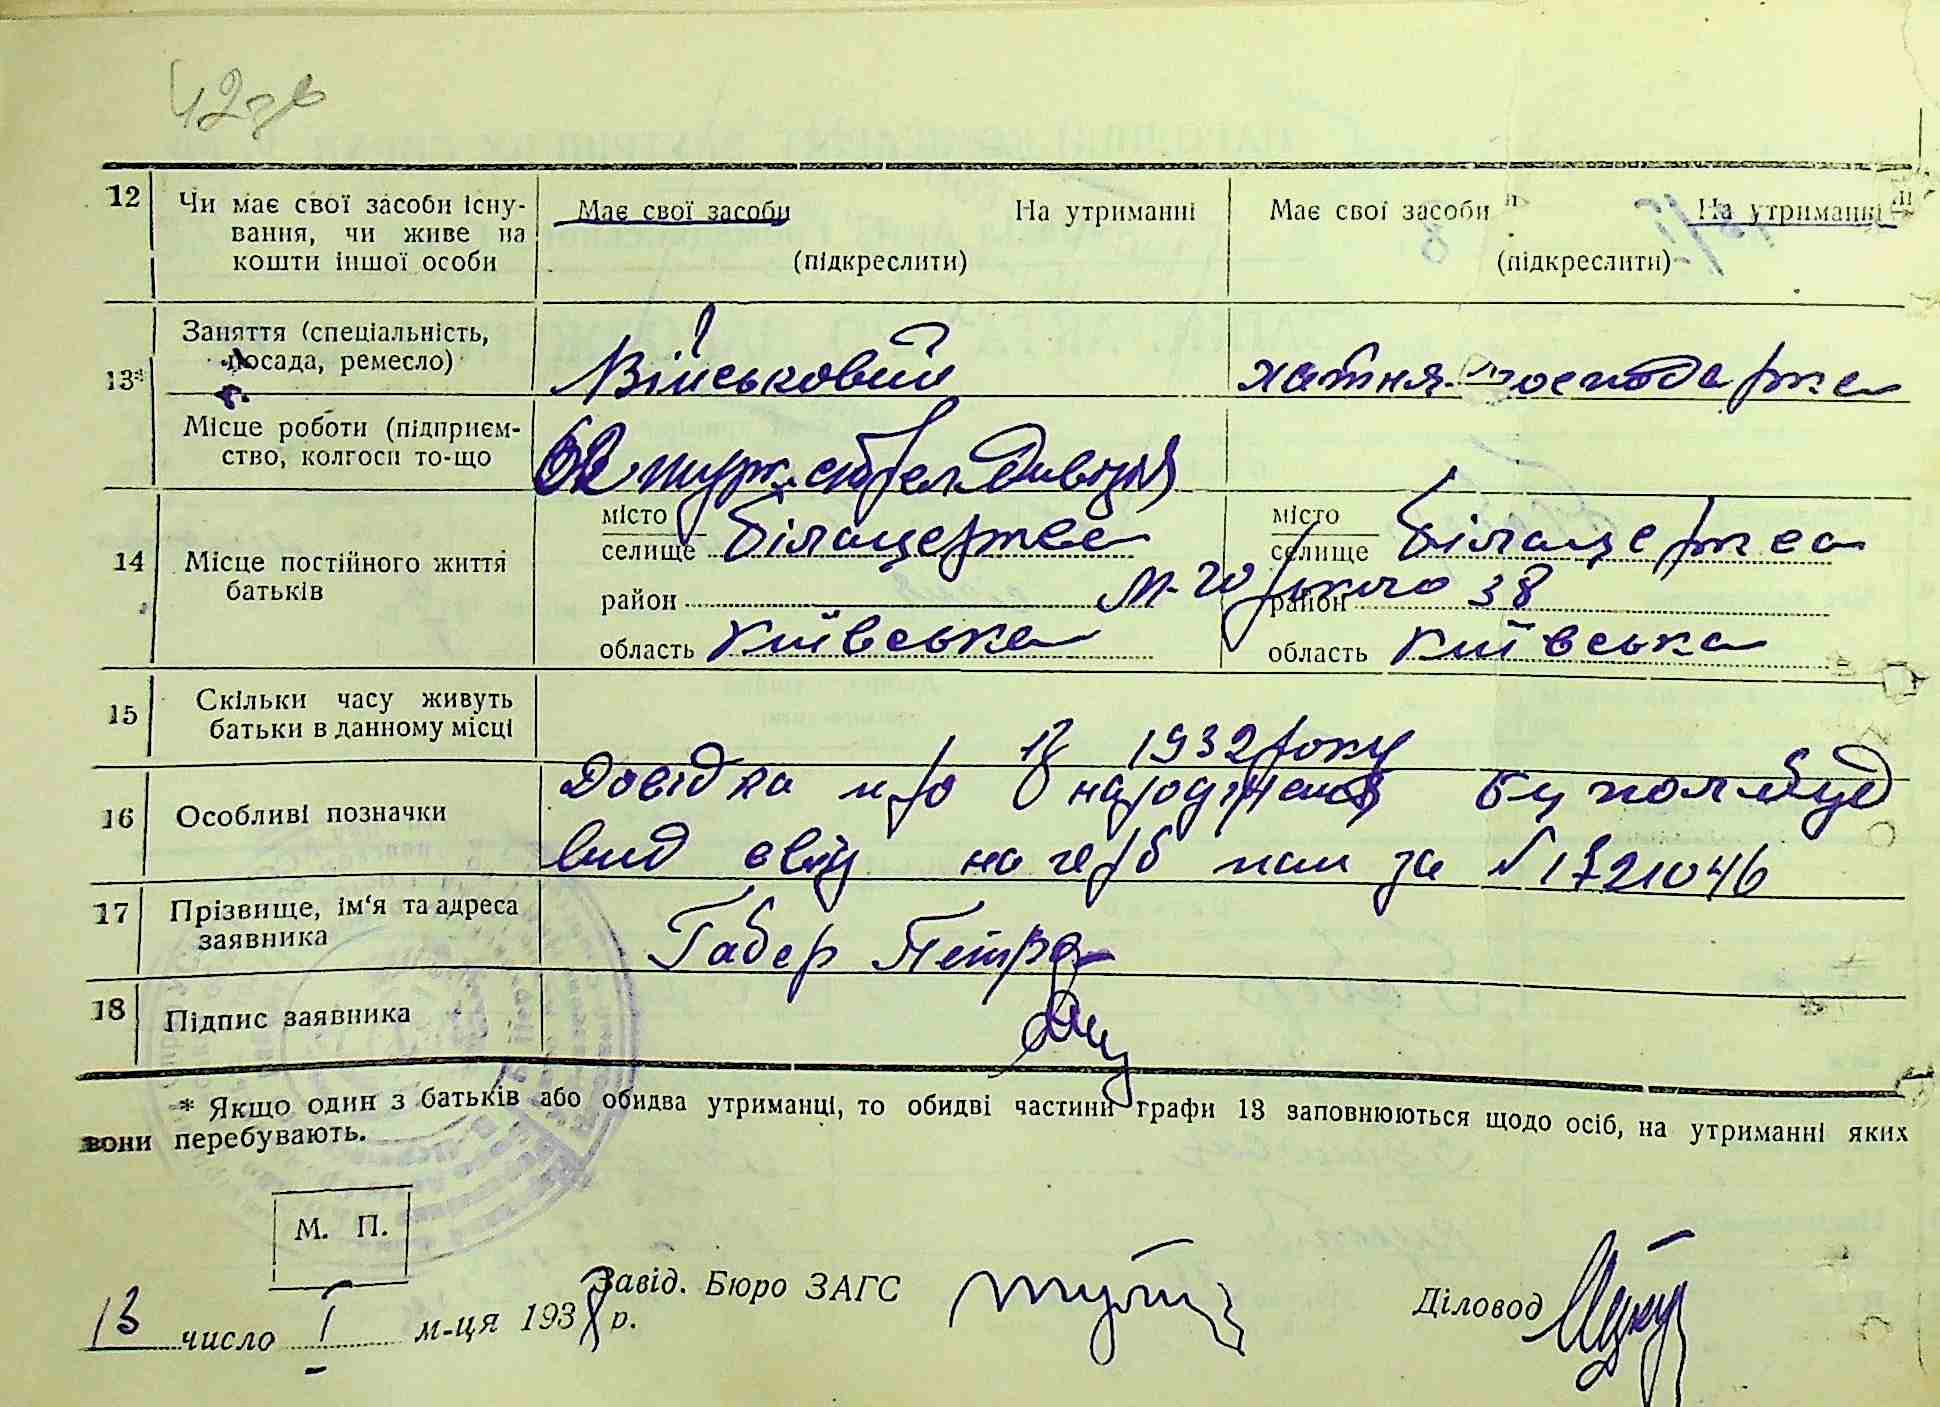 42зв
12 Чи має свої засоби існу-
вання, чи живе на
кошти іншої особи
Має свої засоби На утриманні Має свої засоби На утриманні
(підкреслити) (підкреслити)
13* Заняття (спеціальність,
посада, ремесло)
Військовий хатня господарка
Місце роботи (підприєм-
ство, колгосп то-що
дивізія
14 Місце постійного життя
батьків
місто
селище Білацерква
місто
селище Білацерква
район район 38
область Київська область Київська
15 Скільки часу живуть
батьки в данному місці
1932 року
16 Особливі позначки
Довідка про народження
вид на герб пап за № 1721046
17 Прізвище, ім‘я та адреса
заявника
Габер Петро
18 Підпис заявника
* Якщо один з батьків або обидва утриманці, то обидві частини графи 13 заповнюються щодо осіб, на утриманні яких
вони перебувають.
М. П.
13 число I м-ця 1938 р. Завід. Бюро ЗАГС Діловод